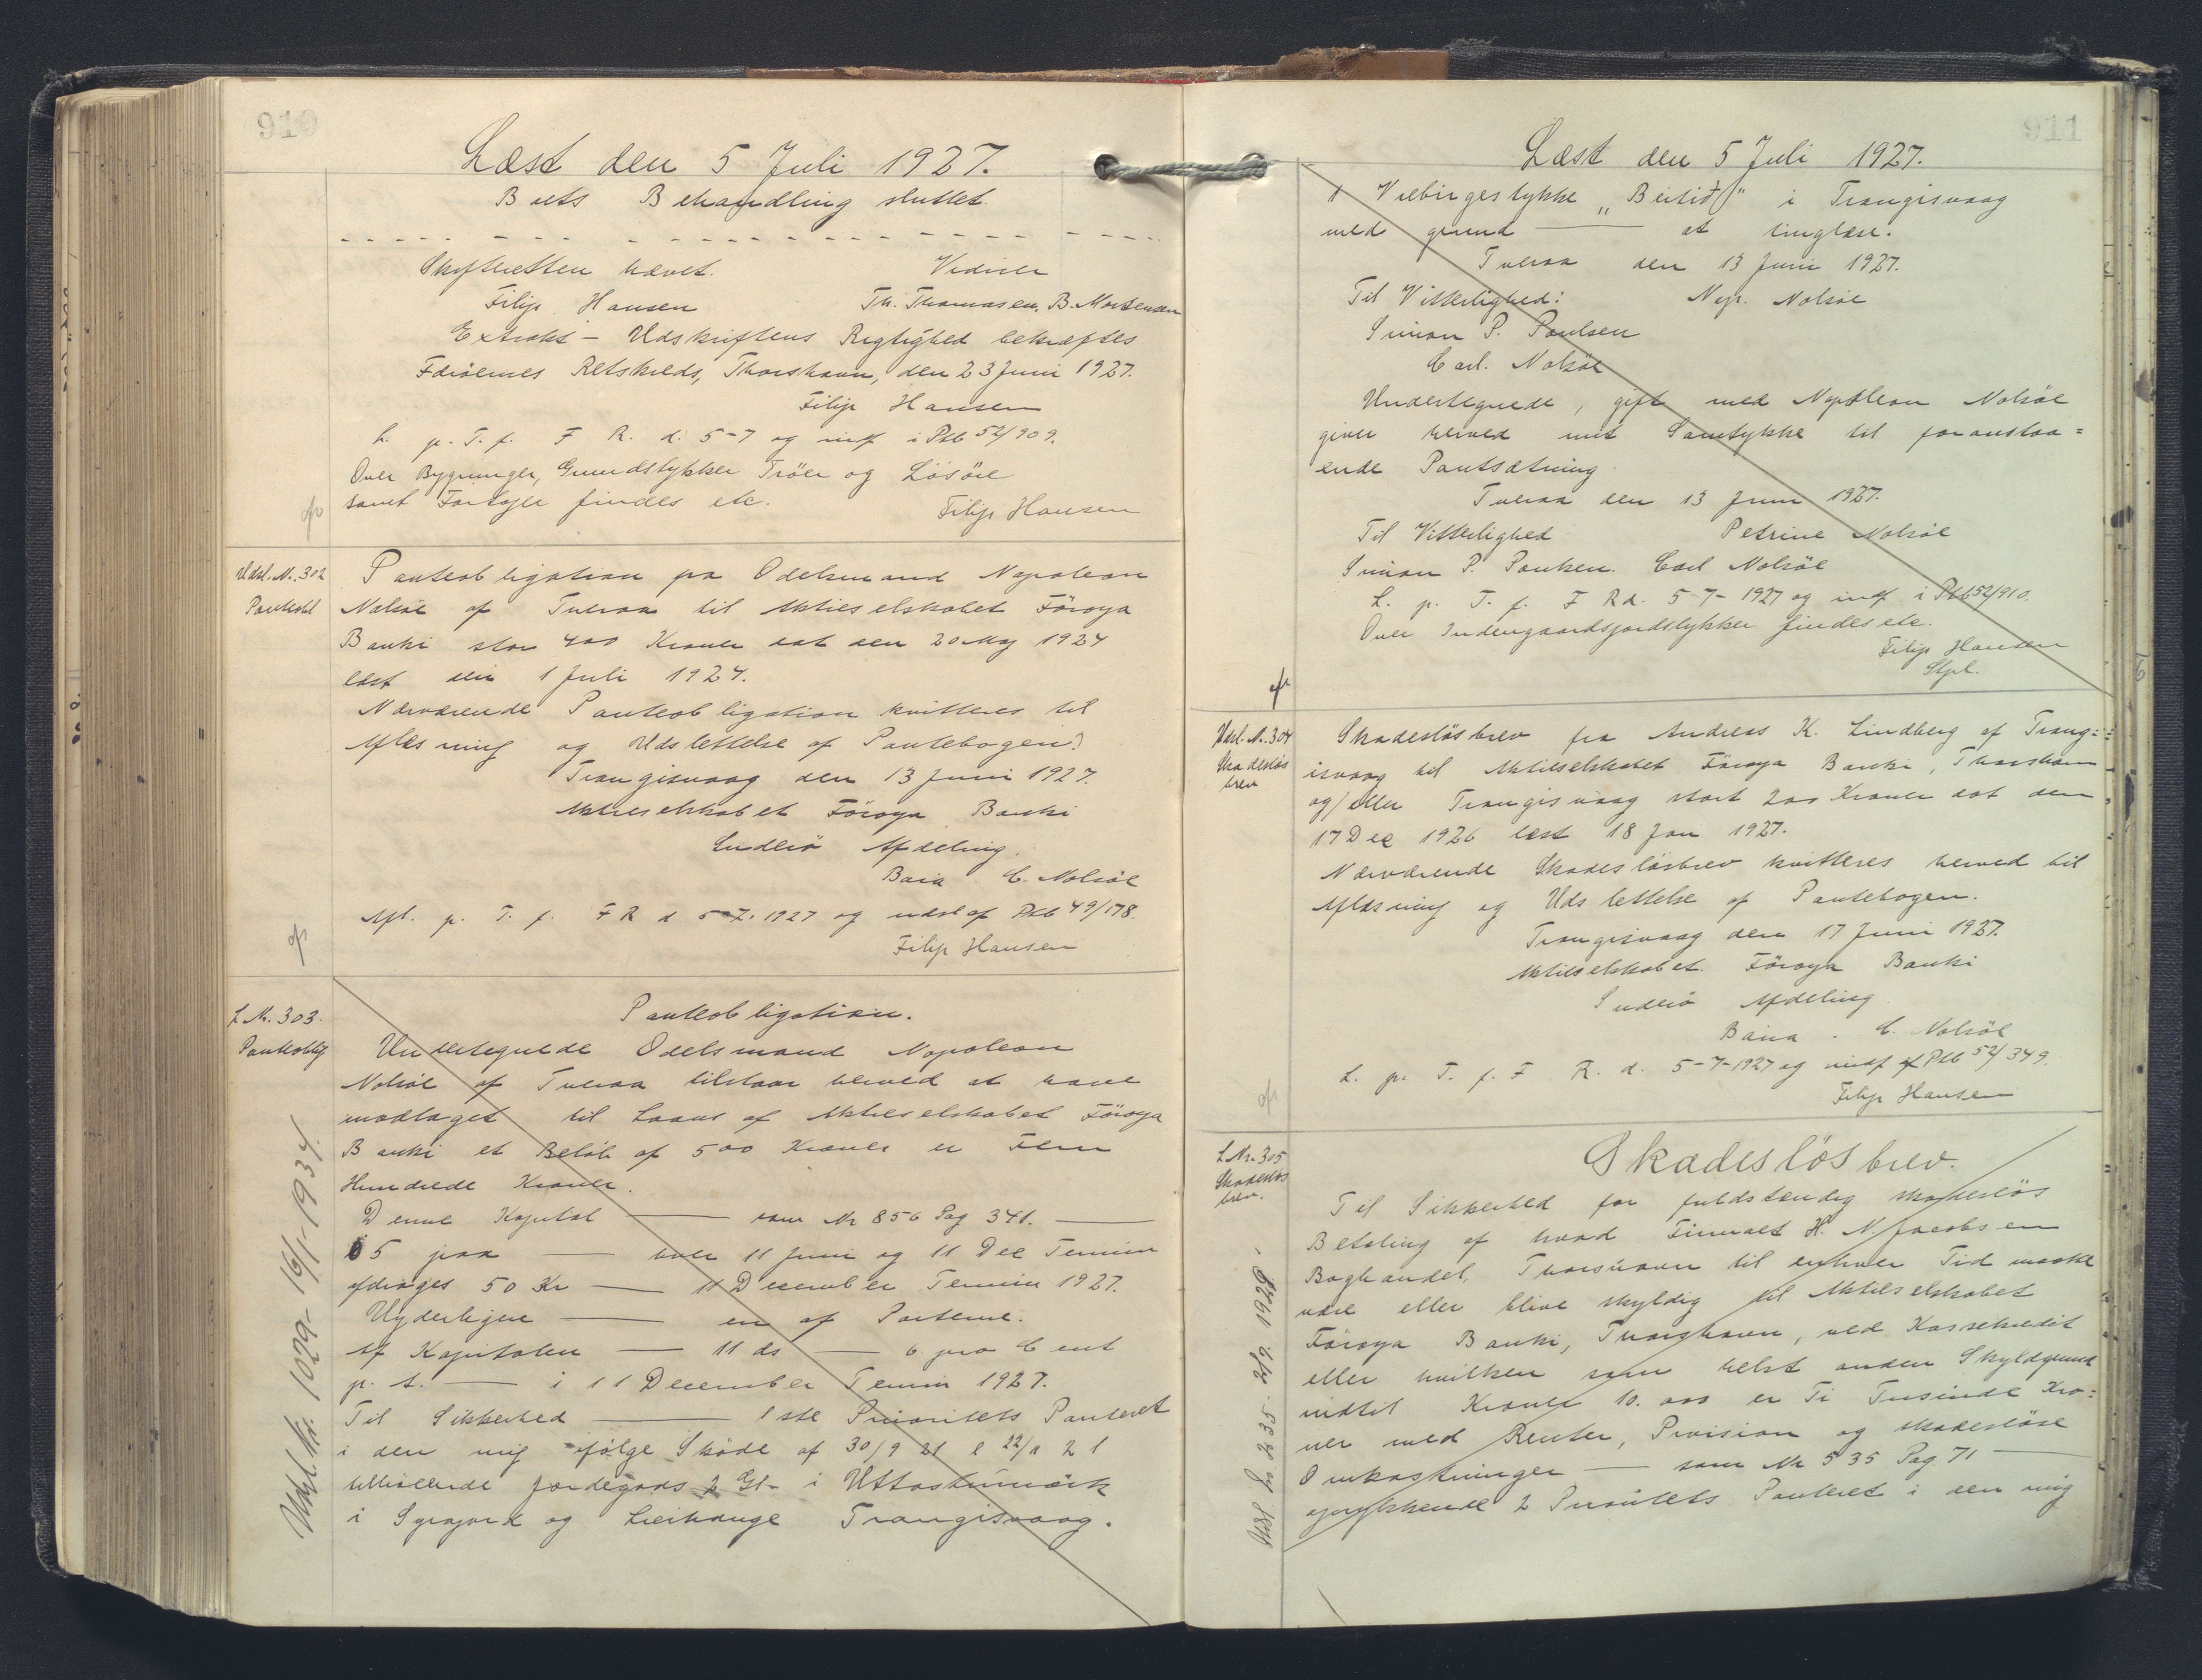 910
Læst den 5 Juli 1927.
Boets Behandling sluttet.
Skifteretten hævet. Vidner
Filip Hansen Th. Thomasen, B. Mortensen
Extrakt - Udskriftens Rigtighed bekræftes
Færöernes Retskreds, Thorshavn, den 23 Juni 1927.
Filip Hansen
L. p. T. f. F R. d. 5-7 og indf i Ptb 52/909.
Over Bygninger, Grundstykker Tröer og Lösöre
samt Fartöjer findes etc. Filip Hansen
Udsl. N. 302
Panteobl
Panteobligation fra Odelsmand Napoleon
Nolsöe af Tveraa til Aktieselskabet Föroya
Banki stor 400 Kroner dat den 20 Maj 1924
læst den 1 Juli 1924.
Nærværende Panteobligation kvitteres til
Aflæsning og Udslettelse af Pantebogen.
Trangisvaag den 13 Juni 1927.
Aktieselskabet Föroya Banki
Suderö Afdeling.
C. Nolsöe
Afl. p. T. f. F R d 5-7-1927 og udsl af Ptb 49/178.
Filip Hansen
L Nr. 303.
Panteoblig
Panteobligation.
Undertegnede Odelsmand Napoleon
Nolsöe af Tveraa tilstaar herved at have
modtaget til Laans af Aktieselskabet Föroya
Banki et Belöb af 500 Kroner er Fem
Hundrede Kroner.
Denne Kapital — som Nr 856 Pag 341. —
5 paa — hver 11 Juni og 11 Dec Termin
afdrages 50 Kr — 11 December Termin 1927.
Yderligere — en af Parterne.
Af Kapitalen — 11 ds — 6 pro Cent
p. A. — i 11 December Termin 1927.
Til Sikkerhed — 1ste Prioritets Panteret
i den mig ifölge Sköde af 30/9 21 l 22/11 21
tilhörende Jordegods 2 Gl- i
i og Trangisvaag.
Udsl. Nr. 1029- 16/1-1934.
911
Læst den 5 Juli 1927.
Viebirgestykke „Beitið" i Trangisvaag
med grund — at tinglæse.
Tveraa den 13 Juni 1927.
Til Vitterlighed: Nap. Nolsöe
Simon P. Poulsen
Carl. Nolsöe
Undertegnede, gift med Napoleon Nolsöe
giver herved mit Samtykke til foranstaa=
ende Pantsætning.
Tveraa den 13 Juni 1927.
Til Vitterlighed Petrine Nolsöe
Simon P. Poulsen. Carl Nolsöe
L. p. T. f. F R d. 5-7-1927 og indf i Ptb 52/910.
Over Indengaardsjordstykker findes etc.
Filip Hansen
Stpl.
Udsl. N. 304
Skadeslös
brev
Skadeslösbrev fra Andreas K. Lindberg af Trang=
isvaag til Aktieselskabet Föroya Banki, Thorshavn
og/eller Trangisvaag stort 200 Kroner dat den
17 Dec 1926 læst 18 Jan 1927.
Nærværende Skadeslösbrev kvitteres herved til
Aflæsning og Udslettelse af Pantebogen.
Trangisvaag den 17 Juni 1927.
Aktieselskabet Föroya Banki
Suderö Afdeling
C. Nolsöe
L. p. T. f. F R. d. 5-7-1927 og indf af Ptb 52/349.
Filip Hansen
L Nr. 305
Skadeslös
brev.
Skadeslösbrev.
Til Sikkerhed for fuldstændig skadeslös
Betaling af hvad Firmaet H. N. Jacobsen
Boghandel, Thorshavn til enhver Tid maatte
være eller blive skyldig til Aktieselskabet
Föroya Banki, Thorshavn, ved Kassekredit
eller hvilken som helst anden Skyldgrund
indtil Kroner 10.000 er Ti Tusinde Kro=
ner med Renter, Provision og skadeslöse
Omkostninger — som Nr 535 Pag 71 —
oprykkende 2 Prioritets Panteret i den mig